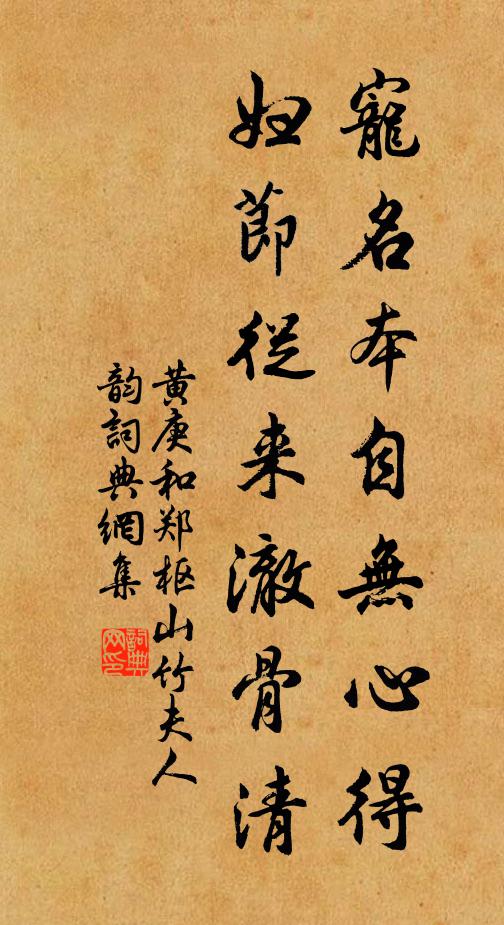 寵名本自無心得
妇節從来澈骨清
黄庚和郑枢山竹夫人
韵詞典網集
詞典网印